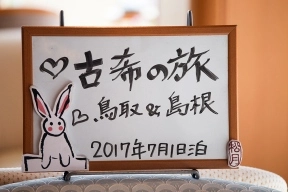 ♡古希の旅
♡鳥取&島根
2017年7月1日泊
松月